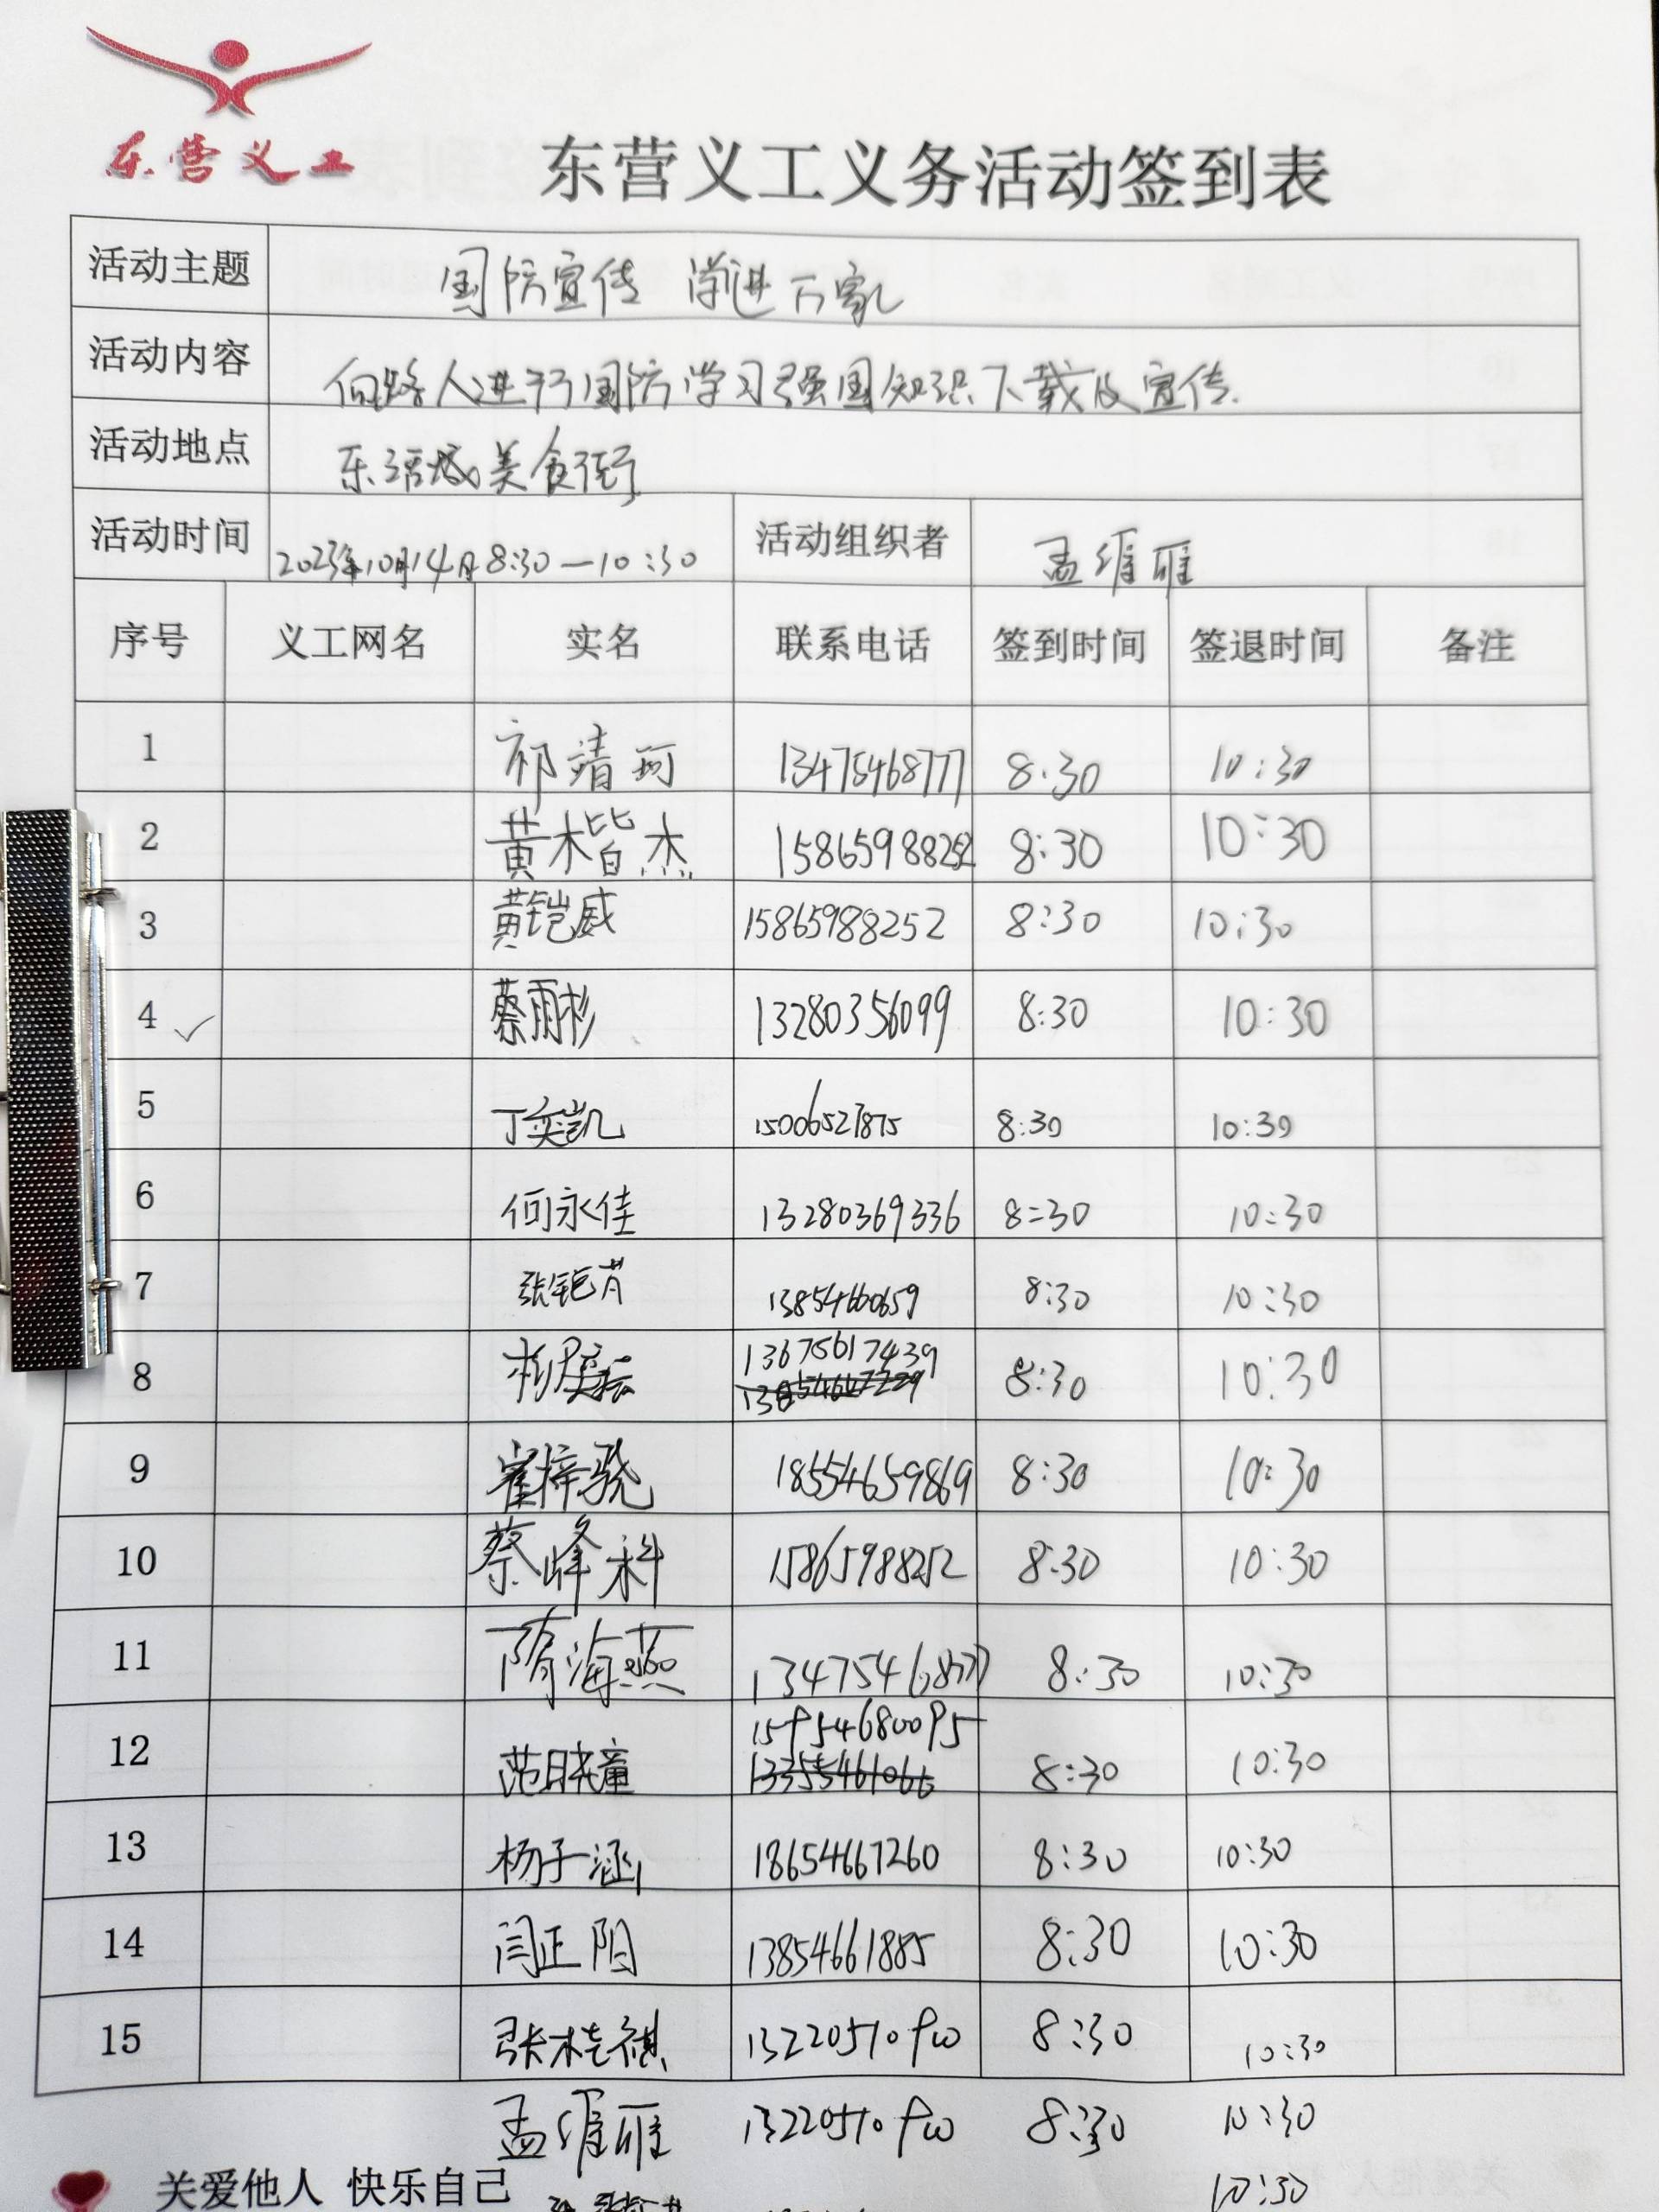 东营义工
东营义工义务活动签到表
活动主题 国防宣传 学进万家
活动内容 向路人进行国防学习强国知识下载及宣传.
活动地点 东活城美食街
活动时间 2023年10月14日8:30—10:30 活动组织者 孟维雁
序号 义工网名 实名 联系电话 签到时间 签退时间 备注
1 祁靖珂 13475468777 8:30 10:30
2 黄楷杰 15865988252 8:30 10:30
3 黄铠威 15865988252 8:30 10:30
4 ✓ 蔡雨杉 13280356099 8:30 10:30
5 丁奕凯 15006527875 8:30 10:30
6 何永佳 13280369336 8:30 10:30
7 13854660659 8:30 10:30
8 13675617439 8:30 10:30
9 崔梓骁 18554659869 8:30 10:30
10 蔡峰科 15865988252 8:30 10:30
11 隋海燕 13475468777 8:30 10:30
12 范晓童 15954680095 8:30 10:30
13355461066
13 杨子涵 18654667260 8:30 10:30
14 闫正阳 13854661885 8:30 10:30
15 张桂祺 8:30 10:30
孟维雁 8:30 10:30
关爱他人 快乐自己 10:30